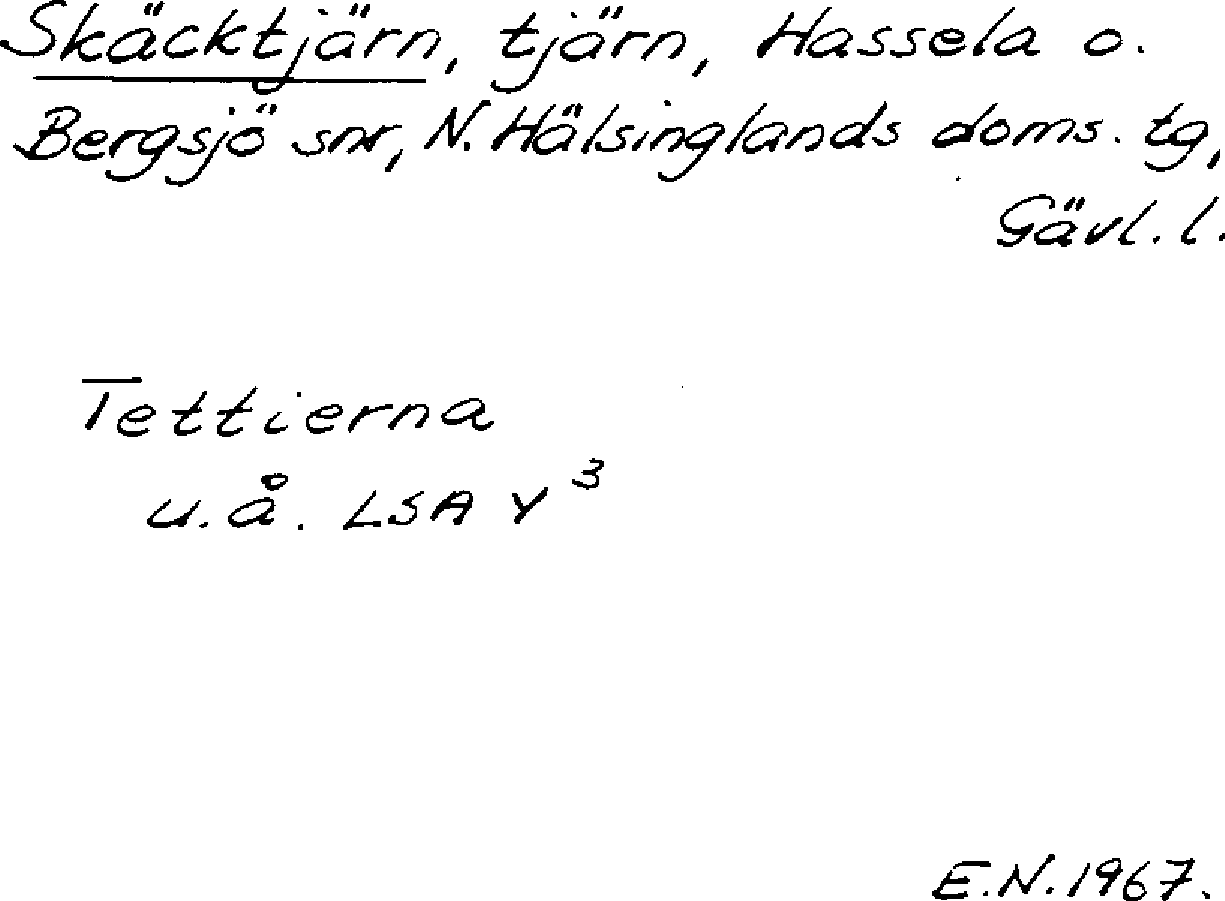 Skäcktjärn, tjärn, Hassela o.
Bergsjö snr, N. Hälsinglands doms. tg,
Gävl. l.
Tettierna
u.å. LSA Y 3
E.N. 1967.